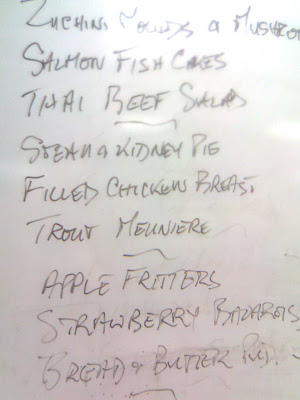 Zuchini Moulds & Mushroo
Salmon Fish Cakes
Thai Beef Salad
Steak & Kidney Pie
Filled Chicken Breast
Trout Meuniere
Apple Fritters
Strawberry
Bread & Butter Pud.